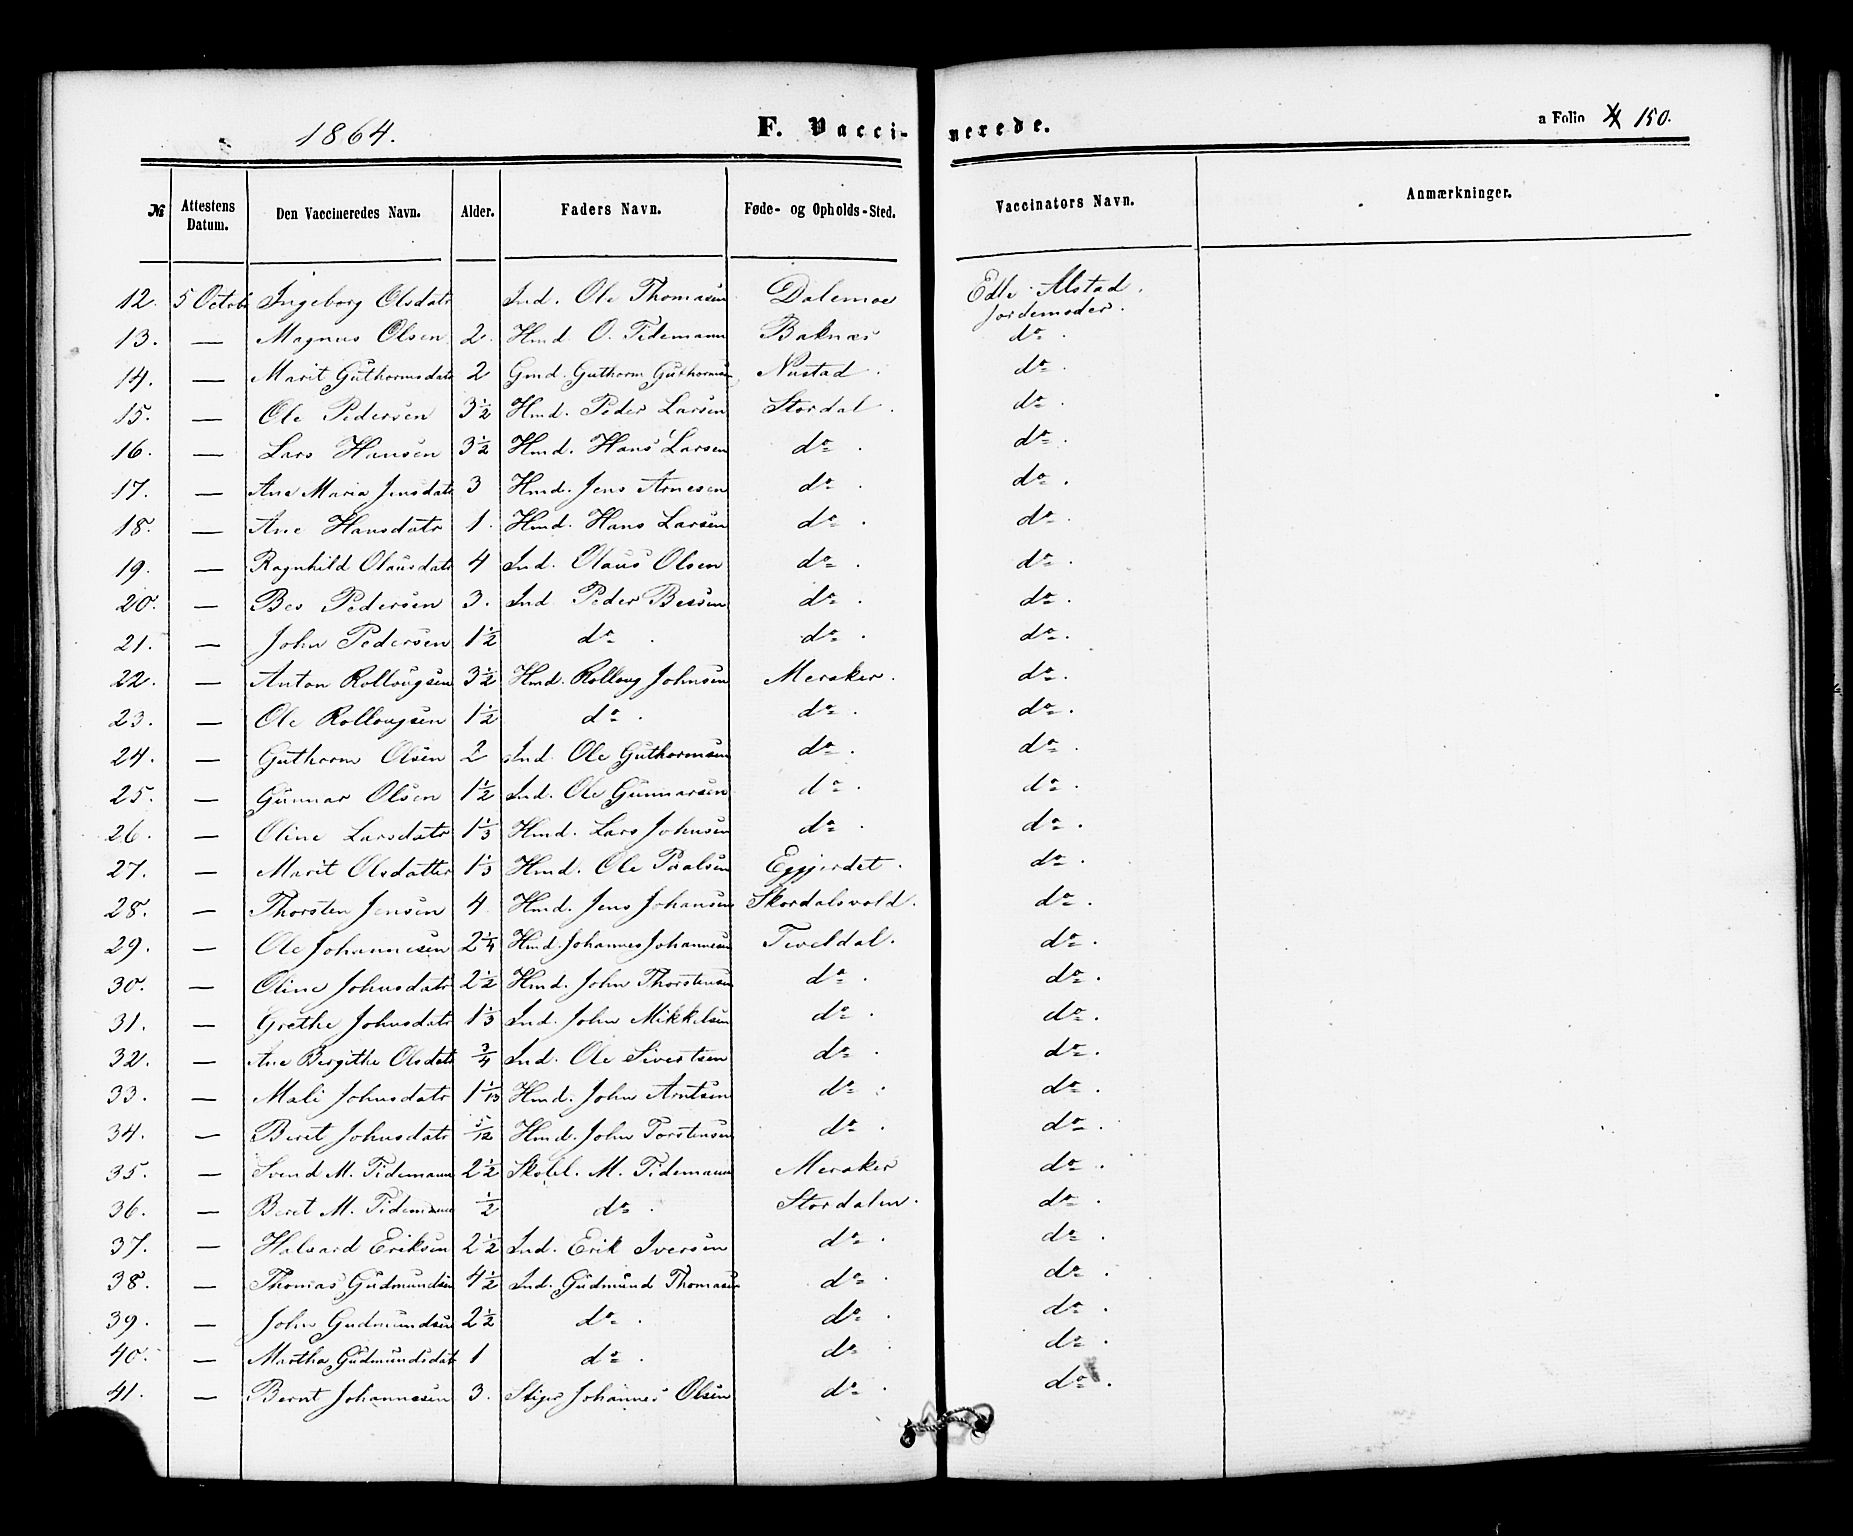 1864.
F. Vaccinerede.
a Folio 150.
№ Attestens Datum. Den Vaccineredes Navn. Alder. Faders Navn. Føde- og Opholds-Sted. Vaccinators Navn. Anmærkninger.
12. 5 Octob Ingeborg Olsdatr Ind. Ole Thomasen Dalemoe Edle Alstad. Jordemoder.
13. — Magnus Olsen 2. Hmd. O. Tidemann Baknæs do.
14. — Marit Guthormsdatr 2 Gmd. Guthorm Guthormsen Nustad. do.
15. — Ole Pedersen 3½ Hmd. Peder Larsen Stordal. do.
16. — Lars Hansen 3½ Hmd. Hans Larsen do. do.
17. — Ane Maria Jensdatr 3 Hmd. Jens Arnesen do. do.
18. — Ane Hansdatr 1. Hmd. Hans Larsen do. do.
19. — Ragnhild Olausdatr 4 Ind. Olaus Olsen do. do.
20. — Bes Pedersen 3. Ind Peder Bessen do. do.
21. — John Pedersen 1½ do. do. do.
22. — Anton Rollougsen 3½ Hmd. Rolloug Johnsen Meraker. do.
23. — Ole Rollougsen 1½ do. do. do.
24. — Guthorm Olsen 2 Ind. Ole Guthormsen do. do.
25. — Gunnar Olsen 1½ Ind. Ole Gunnarsen do. do.
26. — Oline Larsdatr 1⅓ Hmd. Lars Johnsen do. do.
27. — Marit Olsdatter 1⅓ Hmd. Ole Paalsen Eggjerdet. do.
28. — Thorsten Jensen 4 Hmd. Jens Johansen Skordalsvold. do.
29. — Ole Johannesen 2¼ Hmd. Johannes Johannesen Teveldal. do.
30. — Oline Johnsdatr 2½ Hmd. John Thorstensen do. do.
31. — Grethe Johnsdatr 1⅓ Ind. John Mikkelsen do. do.
32. — Ane Bergithe Olsdatr ¾ Ind. Ole Sivertsen do. do.
33. — Mali Johnsdatr 1 1/13 Hmd. John Arntsen do. do.
34. — Beret Johnsdatr 5/12 Hmd. John Torstensen do. do.
35. — Svend M. Tidemann 2½ Skoll. M. Tidemann Meraker do.
36. — Beret M. Tidemann ½ do. Stordalen. do.
37. — Halvard Eriksen 2½ Ind. Erik Iversen do. do.
38. — Thomas Gudmundsen 4½ Ind. Gudmund Thomasen do. do.
39. — John Gudmundsen 2½ do. do. do.
40. — Martha Gudmundsdat 1 do. do. do.
41. — Bernt Johannesen 3. Stiger Johannes Olsen do. do.